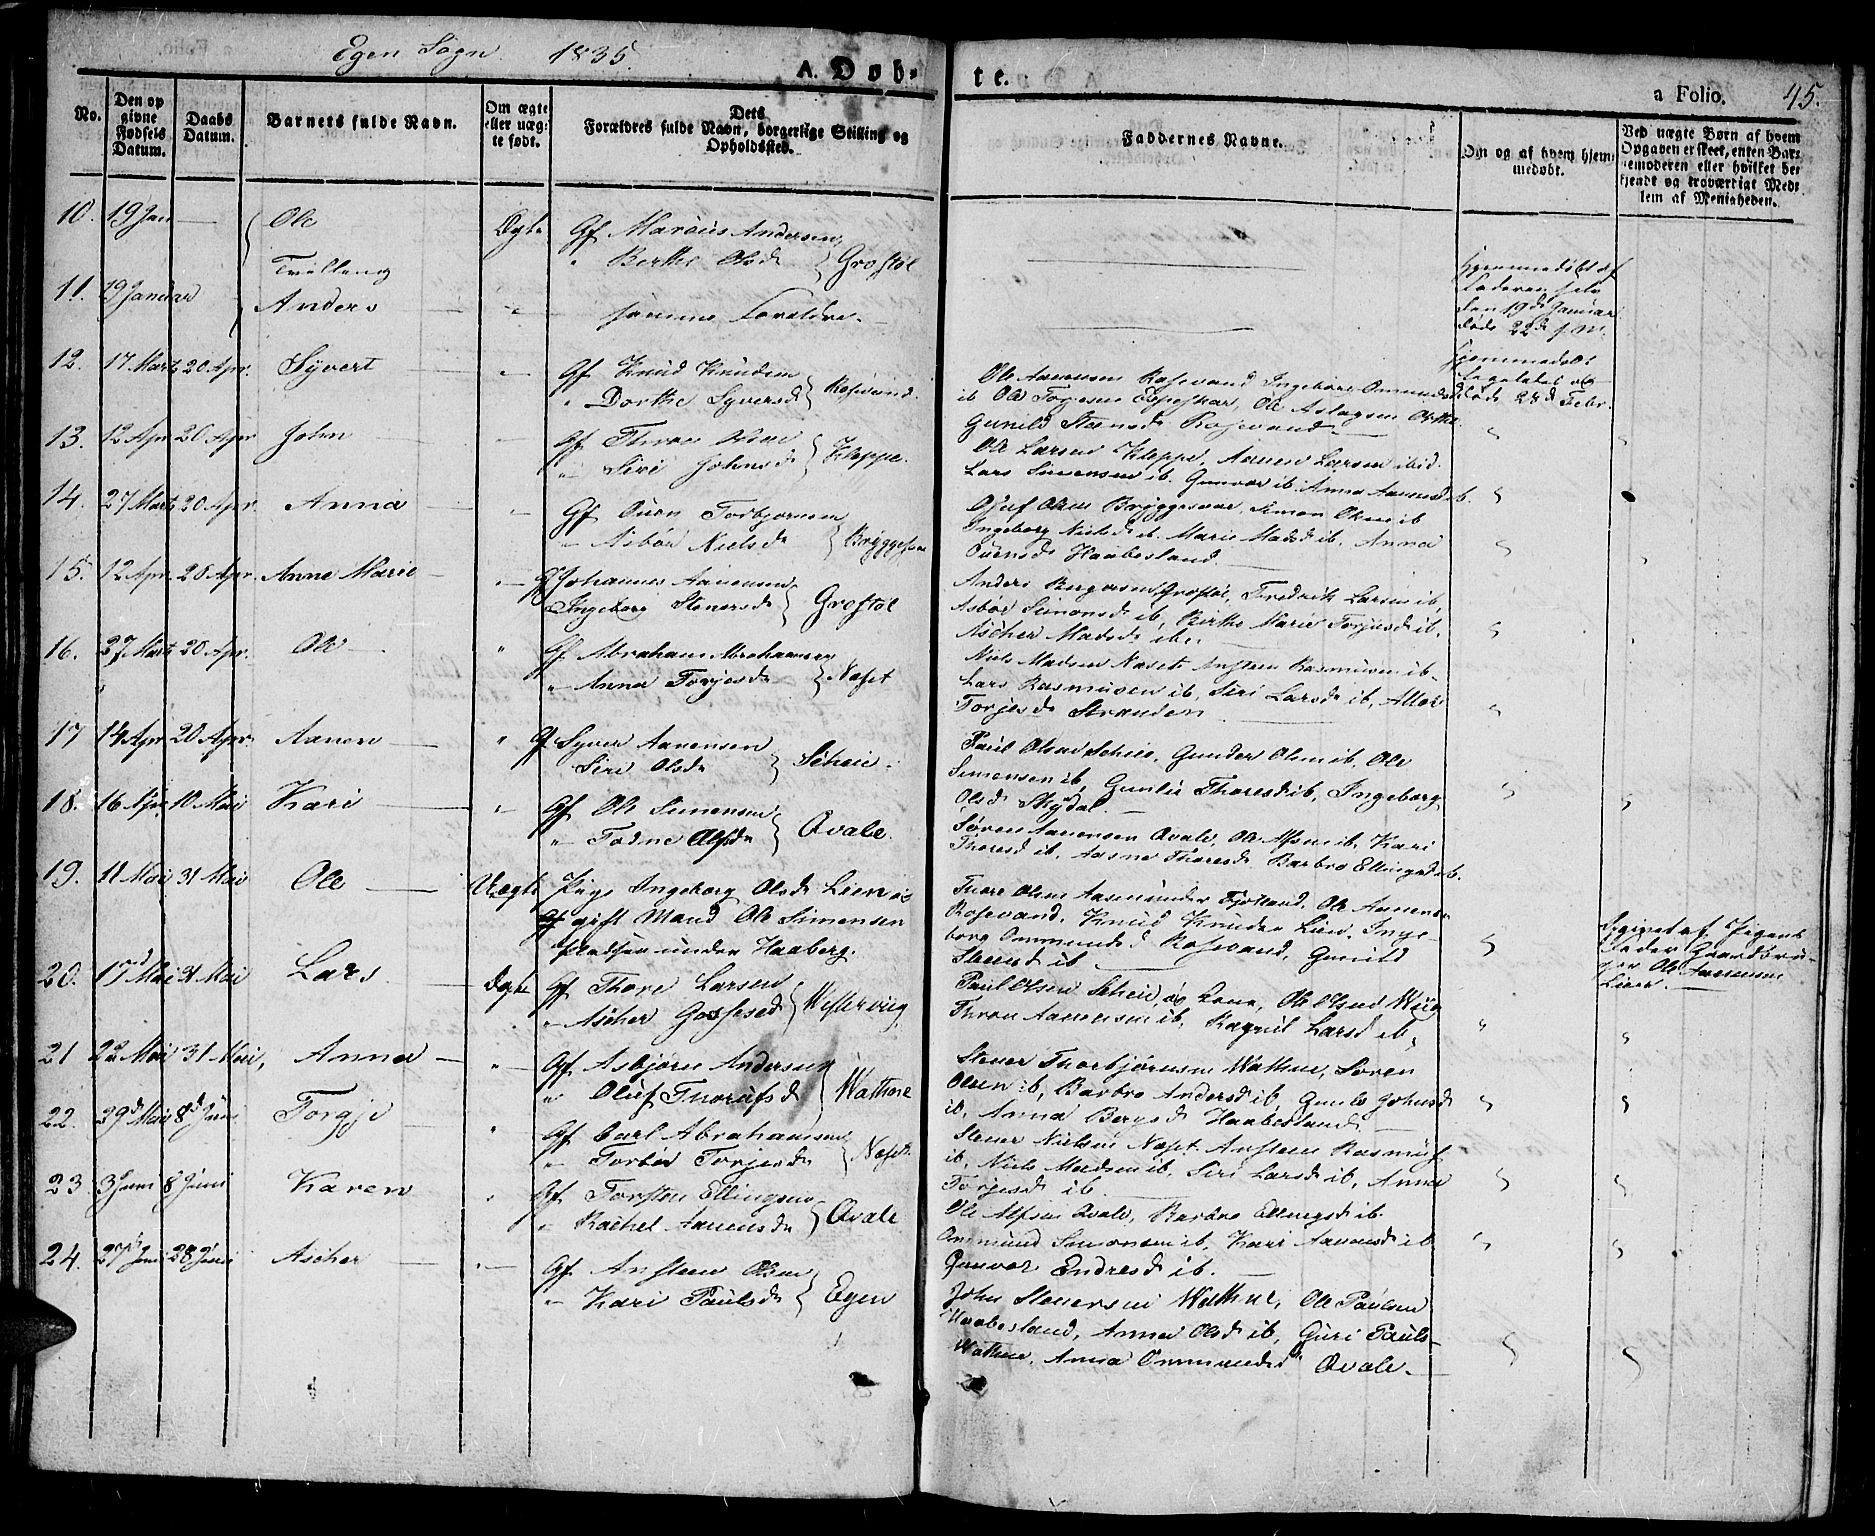 Egen Sogn 1835.
A. Døb-
te.
a Folio. 45.
No.
Den op
givne
Fødsels
Datum.
Daabs
Datum.
Barnets fulde Navn.
Om ægte
eller uæg-
te født.
Dets
Forældres fulde Navn, borgerlige Stilling og
Opholdssted.
Faddernes Navne.
Om og af hvem hjem-
medøbt.
Ved uægte Børn af hvem
Opgaven er skeet, enten Bar-
nemoderen eller hvilket be-
kjendt og troværdigt Med-
lem af Menigheden.
10. 19 Jan — Ole Ægte Gf Marcus Andersen
Tvilling " Berthe Olsd Grostøl
11. 19 Januar Anders " samme Forældre
Hjemmedøbt af
Faderen selv
den 19d Januar
døde 22d
12. 17 Marts 20 Apr. Syvert " Gf Knud Knudsen
" Dorthe Syversd Rosevand
Hjemmedøbt
døde 28d Febr.
Ole Aanensen Rosevand Ingebor Ommundsd
ib Ole Torjesen Espeskar, Ole Aslagsen
Gunild Steensd Rosevand
13. 12 Apr 20 Apr John Gf Thron Olsen
" Siri Johnsd Kleppe.
Ole Larsen Kleppe, Aanen Larsen ibid.
Lars Simensen ib. Gunvor ib. Anna Aanensd ib.
14. 27 Marts 20 Apr. Anna Gf Ouen Torbjørnsen
" Asbør Nielsd Bryggesaa
Oluf Olsen Bryggesaae, Simon Olsen ib
Ingeborg Nielsd ib. Marie Madsd ib. Anna
Ouensd Haabesland
15. 12 Apr. 20 Apr. Anne Marie " Gf Johannes Aanensen
Ingeborg Stenersd Grostøl
Anders Bergersen Grostøl, Fredrik Larsen ib,
Asbør Simonsd ib, Birthe Marie Torjusd ib.
Ascher Madsd ib.
16. 27 Marts 20 Apr. Ole " Gf Abraham Abrahamsen
" Anna Torjesd Næset
Niels Madsen Næset Ansteen Rasmusen ib.
Lars Rasmusen ib, Siri Larsd ib,
Torjesd Stranden
17 14 Apr 20 Apr. Aanen " Gf Syver Aanensen
Siri Olsd Scheie.
Paul Olsen Scheie, Gunder Olsen ib, Ole
Simonsen ib, Gunlie Thoresd ib, Ingeborg
Olsd
18. 16 Apr. 10 Mai Kari " Gf Ole Simensen
" Todne Alfsd Qvale.
Søren Aanensen Qvale, Ole Alfsen ib, Kari
Thoresd ib, Aasne Thoresd Barbro Ellingsd ib.
19. 11 Mai 31 Mai Ole — Uægte Pige Ingeborg Olsd Lien og
gift Mand Ole Simensen
Pladsen under Haaberg.
Thore Olsen Aasmunder Fjotland, Ole Aanensen
Rosevand, Knud Knudsen Lien, Inge-
borg Ommundsd Rosevand, Gunild
Steensd ib
Opgivet af Pigens
Fader Gaardbru-
ger Ole Aanensen
Lien.
20. 17d Mai 31 Mai Lars Ægte Gf Thore Larsen
" Ascher Gosesd Westervig
Paul Olsen Scheie og Kone, Ole Olsen
Thron Aanensen ib, Ragnil Larsd ib,
21 22 Mai 31 Mai, Anna " Gf Asbjørn Andersen
" Oluf Thorufsd Wathne
Stener Thorbjørnsen Wathne, Søren
Olsen ib, Barbro Andersd ib, Gunlo Johnsd
ib, Anna Bergsd Haabesland
22. 29d Mai 8d Juni Torgje " Gf Carl Abrahamsen
" Torbør Torjesd Næset
Stener Nielsen Næset Ansteen Rasmus
ib, Niels Madsen ib, Siri Larsd ib, Anna
Torjesd ib
23 3 Juni 8 Juni Karen " Gf Torsten Ellingsen
" Rachel Aanensd Qvale
Ole Alfsen Qvale, Barbro Ellingsd ib.
Ommund Simonsen ib, Kari Aanensd ib
Gunvor Endresd ib.
24. 27d Juni 28 Juni Ascher " Gf Ansteen Olsen
" Kari Paulsd Egen
John Stenersen Wathne, Ole Paulsen
Haabesland, Anna Olsd ib, Guri Pauls-
Wathne, Anna Ommundsd Qvale.